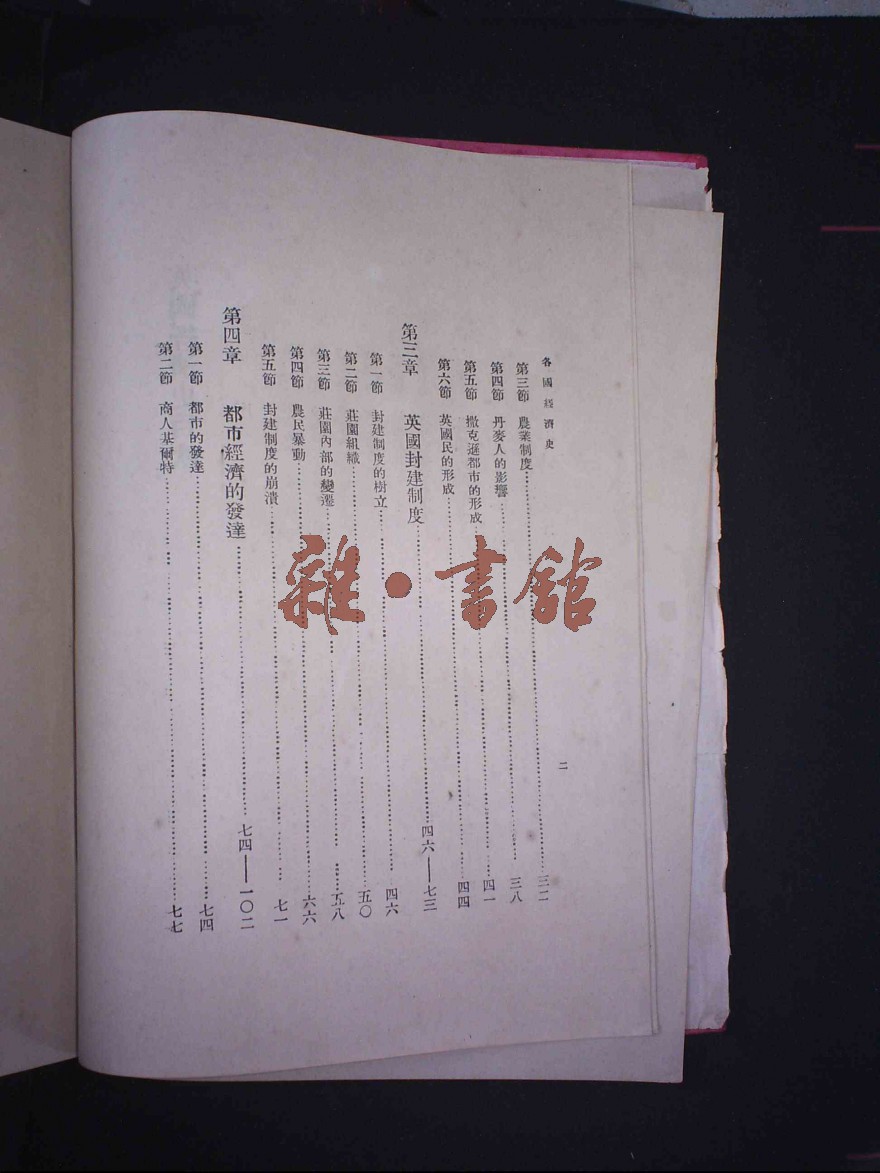 各國經濟史
二
第三節　農業制度……三二
第四節　丹麥人的影響……三八
第五節　撒克遜都市的形成……四一
第六節　英國民的形成……四四
第三章　英國封建制度……四六——七三
第一節　封建制度的樹立……四六
第二節　莊園組織……五〇
第三節　莊園內部的變遷……五八
第四節　農民暴動……六六
第五節　封建制度的崩潰……七一
第四章　都市經濟的發達……七四——一〇二
第一節　都市的發達……七四
第二節　商人基爾特……七七
雜·書館